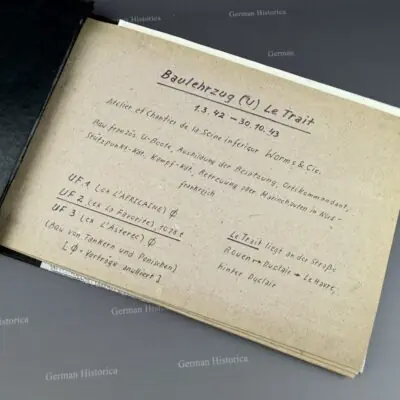 Baulehrzug (U) Le Trait
1.3.42 – 30.10.43
Atelier et Chantier de la Seine inferieur Worms & Cie.
Bau französ. U-Boote, Ausbildung der Besatzung, Ortskommandant,
Stützpunkt-Kdt, Kampf-Kdt, Betreuung aller Marinebauten in Nord-
frankreich
UF. 1 (ex L'AFRICAINE) ϕ
UF 2 (ex La Favorite)
UF 3 (ex L'Asteree) ϕ
(Bau von Tankern und Penischen)
[ϕ = Verträge annulliert]
Le Trait liegt an der Straße
Rouen → Duclair → Le Havre,
hinter Duclair
German Historica
German Historica
German Historica
German Historica
German Historica
German Historica
German Historica